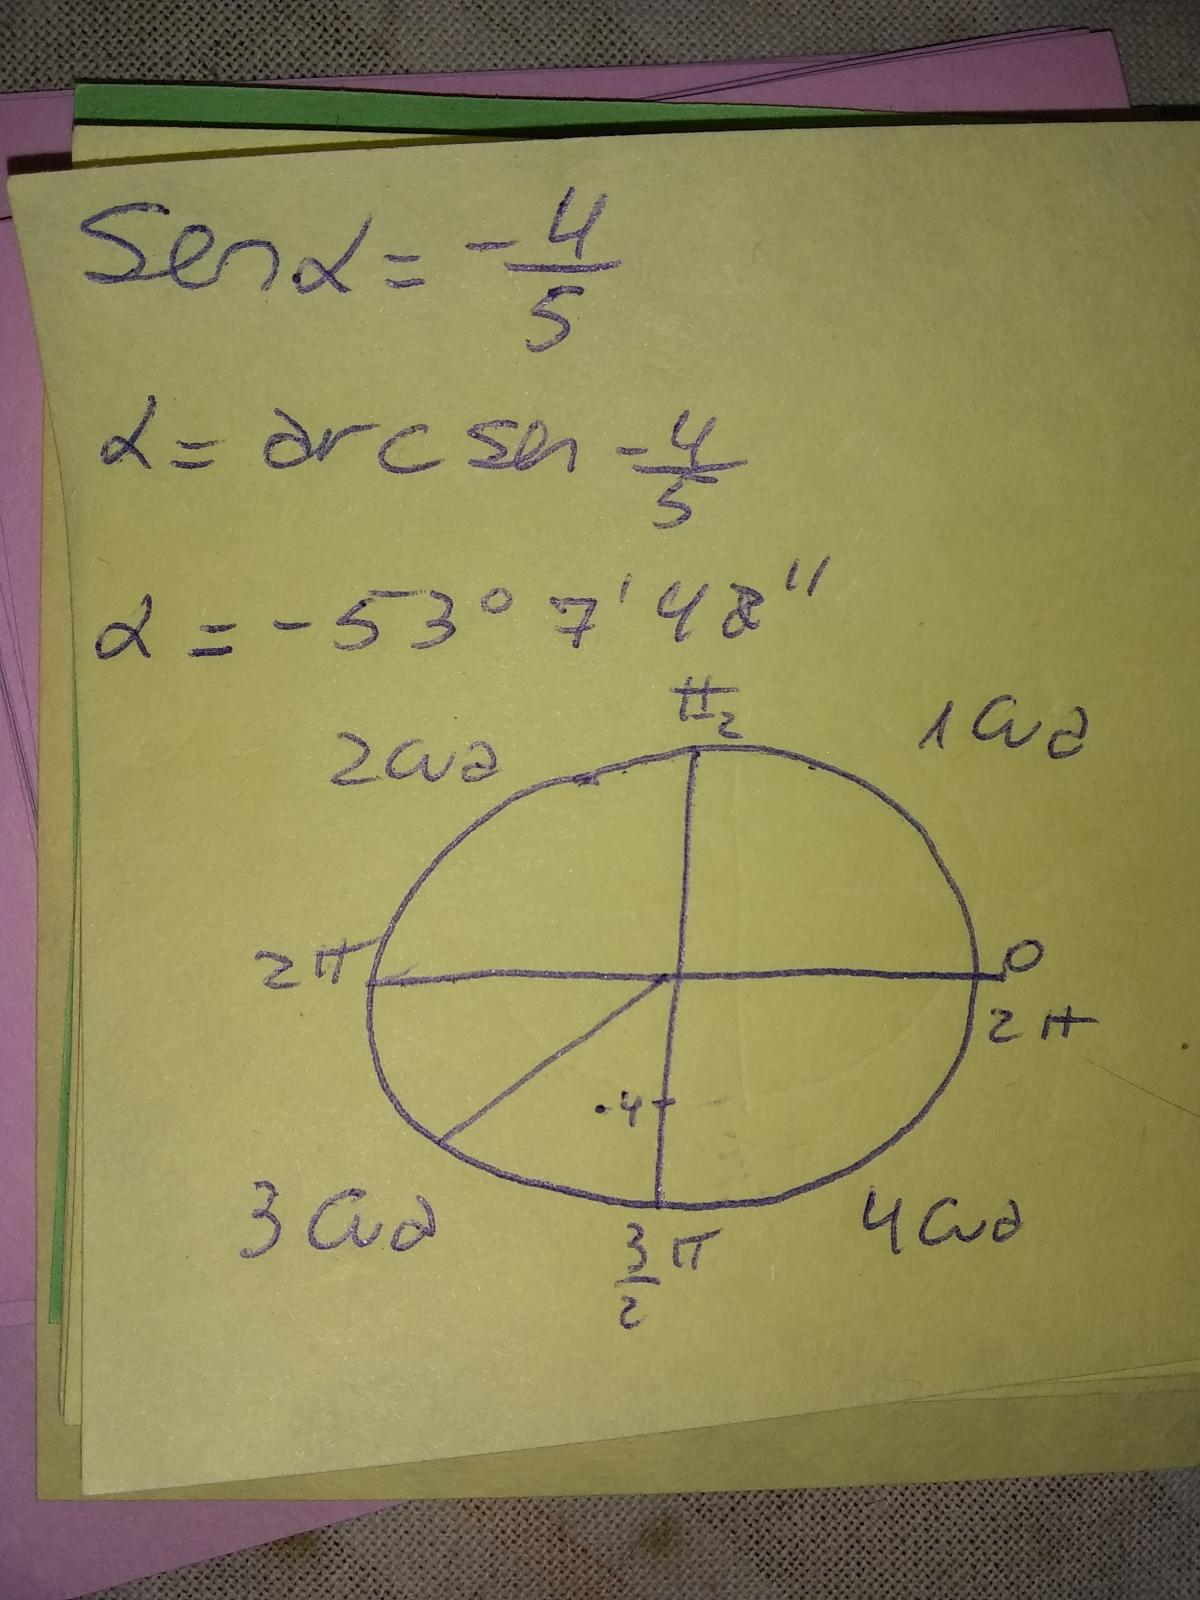 Sen α = -4/5
α = arc sen -4/5
α = -53° 7' 48"
π/2
2 Cua
1 Cua
2π
0
2π
-4
3 Cua
4 Cua
3/2 π